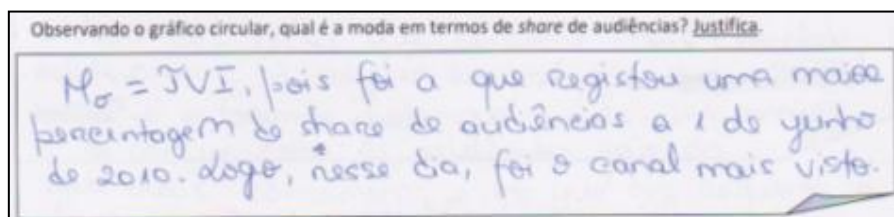 Observando o gráfico circular, qual é a moda em termos de share de audiências? Justifica.
Mo = TVI, pois foi a que registou uma maior
percentagem de share de audiências a 1 de junho
de 2010. Logo, nesse dia, foi o canal mais visto.